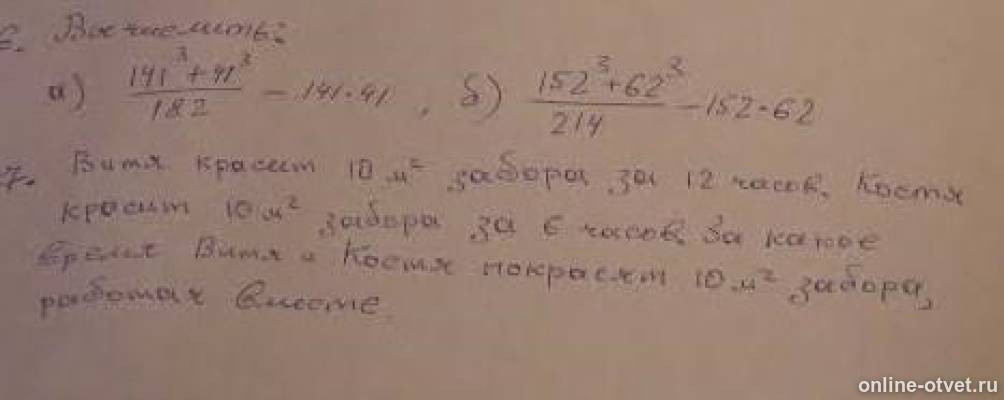 6. Вычислить:
а) (141³+41³)/182 - 141·41, б) (152³+62³)/214 - 152·62
7. Витя красит 10 м² забора за 12 часов, Костя
красит 10 м² забора за 6 часов. За какое
время Витя и Костя покрасят 10 м² забора,
работая вместе.
online-otvet.ru